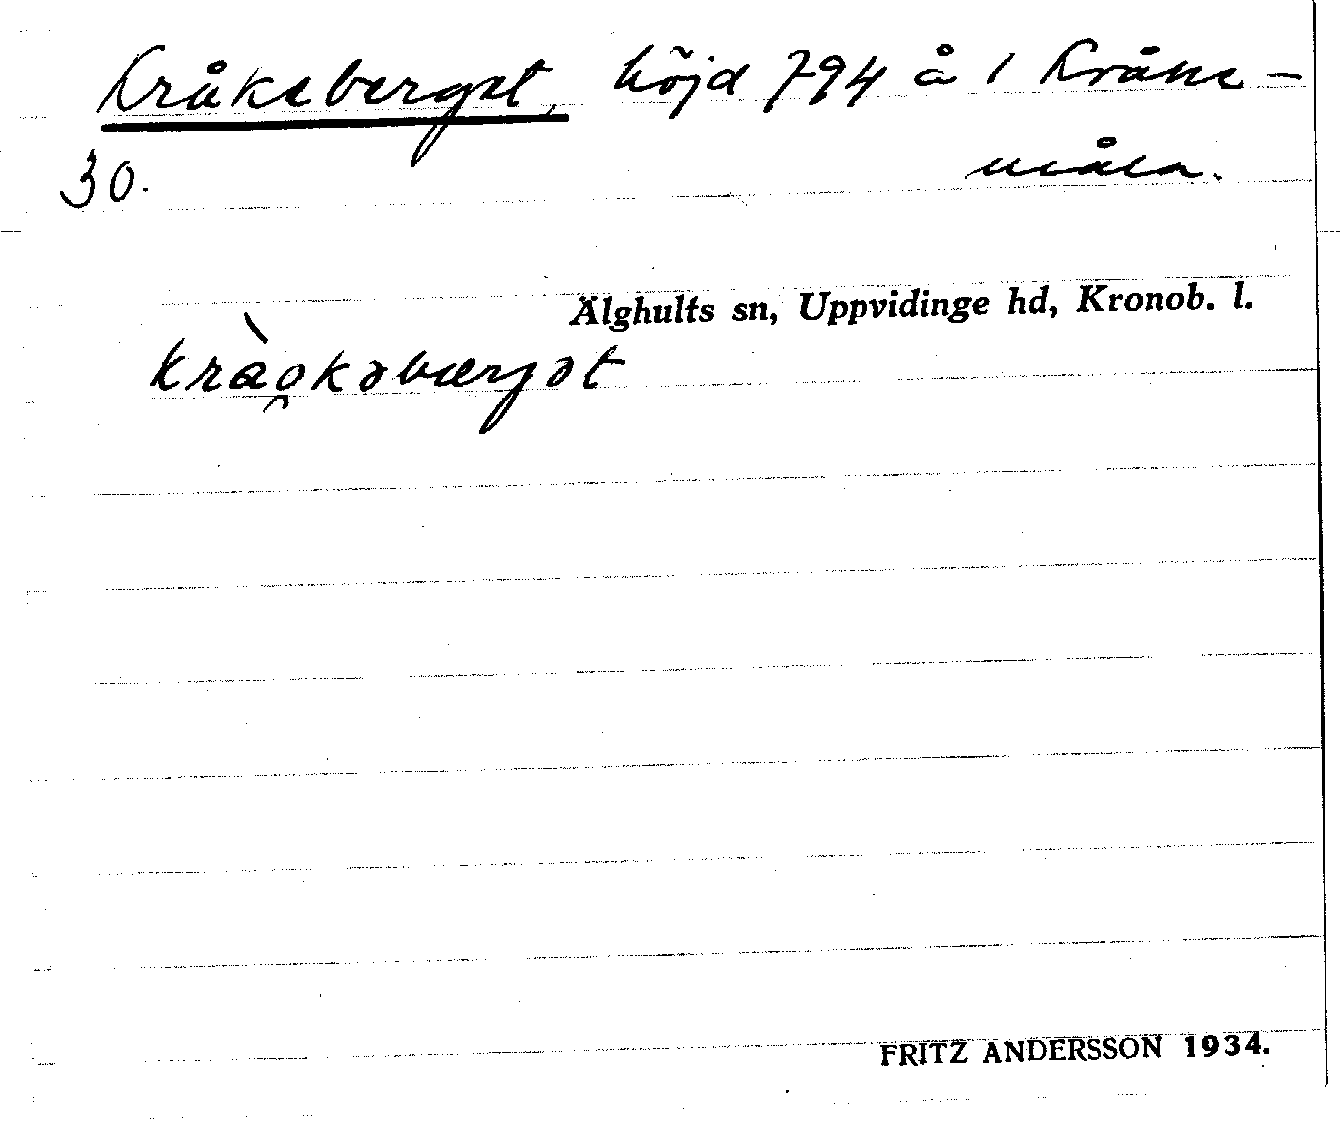 Kråkeberget, höjd 794 å 1 Kråke-
måla.
30.
Älghults sn, Uppvidinge hd, Kronob. l.
krào̯kəbærgət
FRITZ ANDERSSON 1934.